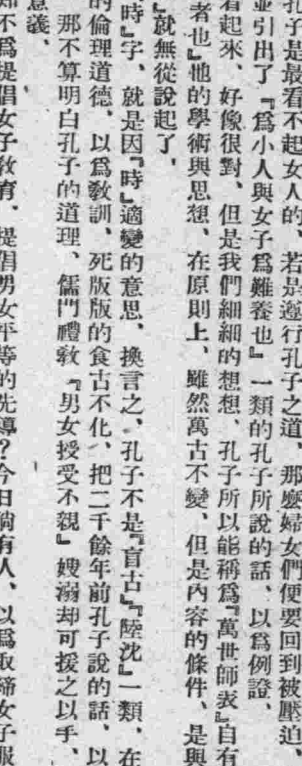 孔子是最看不起女人的、若是遵行孔子之道、那麽婦女們便要回到被壓迫、
並引出了『爲小人與女子爲難養也』一類的孔子所說的話、以爲例證、
看起來、好像很對、但是我們細細的想想、孔子所以能稱爲『萬世師表』自有
者也』他的學術與思想、在原則上、雖然萬古不變、但是內容的條件、是與
』就無從說起了、
時』字、就是因『時』適變的意思、換言之、孔子不是『盲古』『陸沈』一類、在
的倫理道德、以爲敎訓、死版版的食古不化、把二千餘年前孔子說的話、以
那不算明白孔子的道理、儒門禮敎『男女授受不親』嫂溺却可援之以手、
意義、
知不爲提倡女子敎育、提倡男女平等的先導？今日倘有人、以爲取締女子服